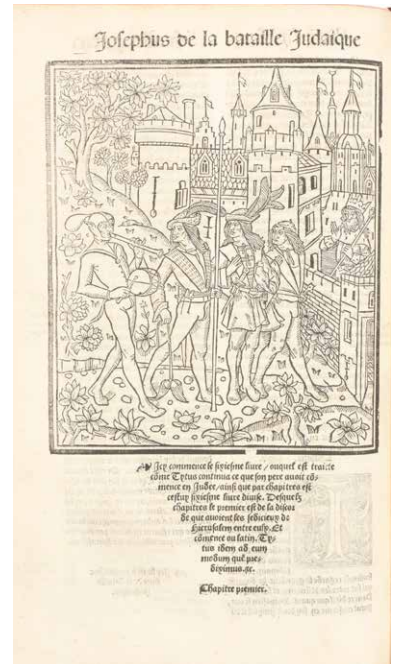 Josephus de la bataille Judaique
Icy commence le sixiesme liure / ouquel est traicte
cōme Tytus continua ce que son pere auoit cō-
mence en Judee / ainsi que par chapitres est
cestuy sixiesme liure diuise. Desquelz
chapitres le premier est de la discor
de que auoient les sedicieux de
Hierusalem entre eulx. Et
cōmence ou latin. Ty-
tus idem ad eum
modum quē pre-
diximus. &c.
Chapitre premier.